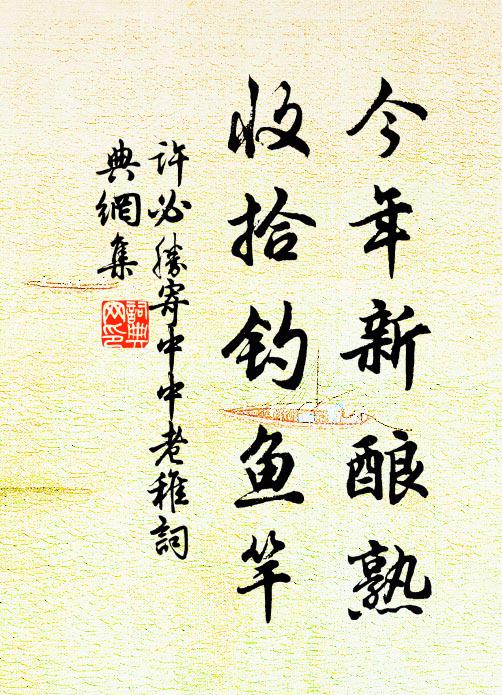 今年新酿熟
收拾钓鱼竿
许必勝寄中中老稚詞
典網集
詞典网印